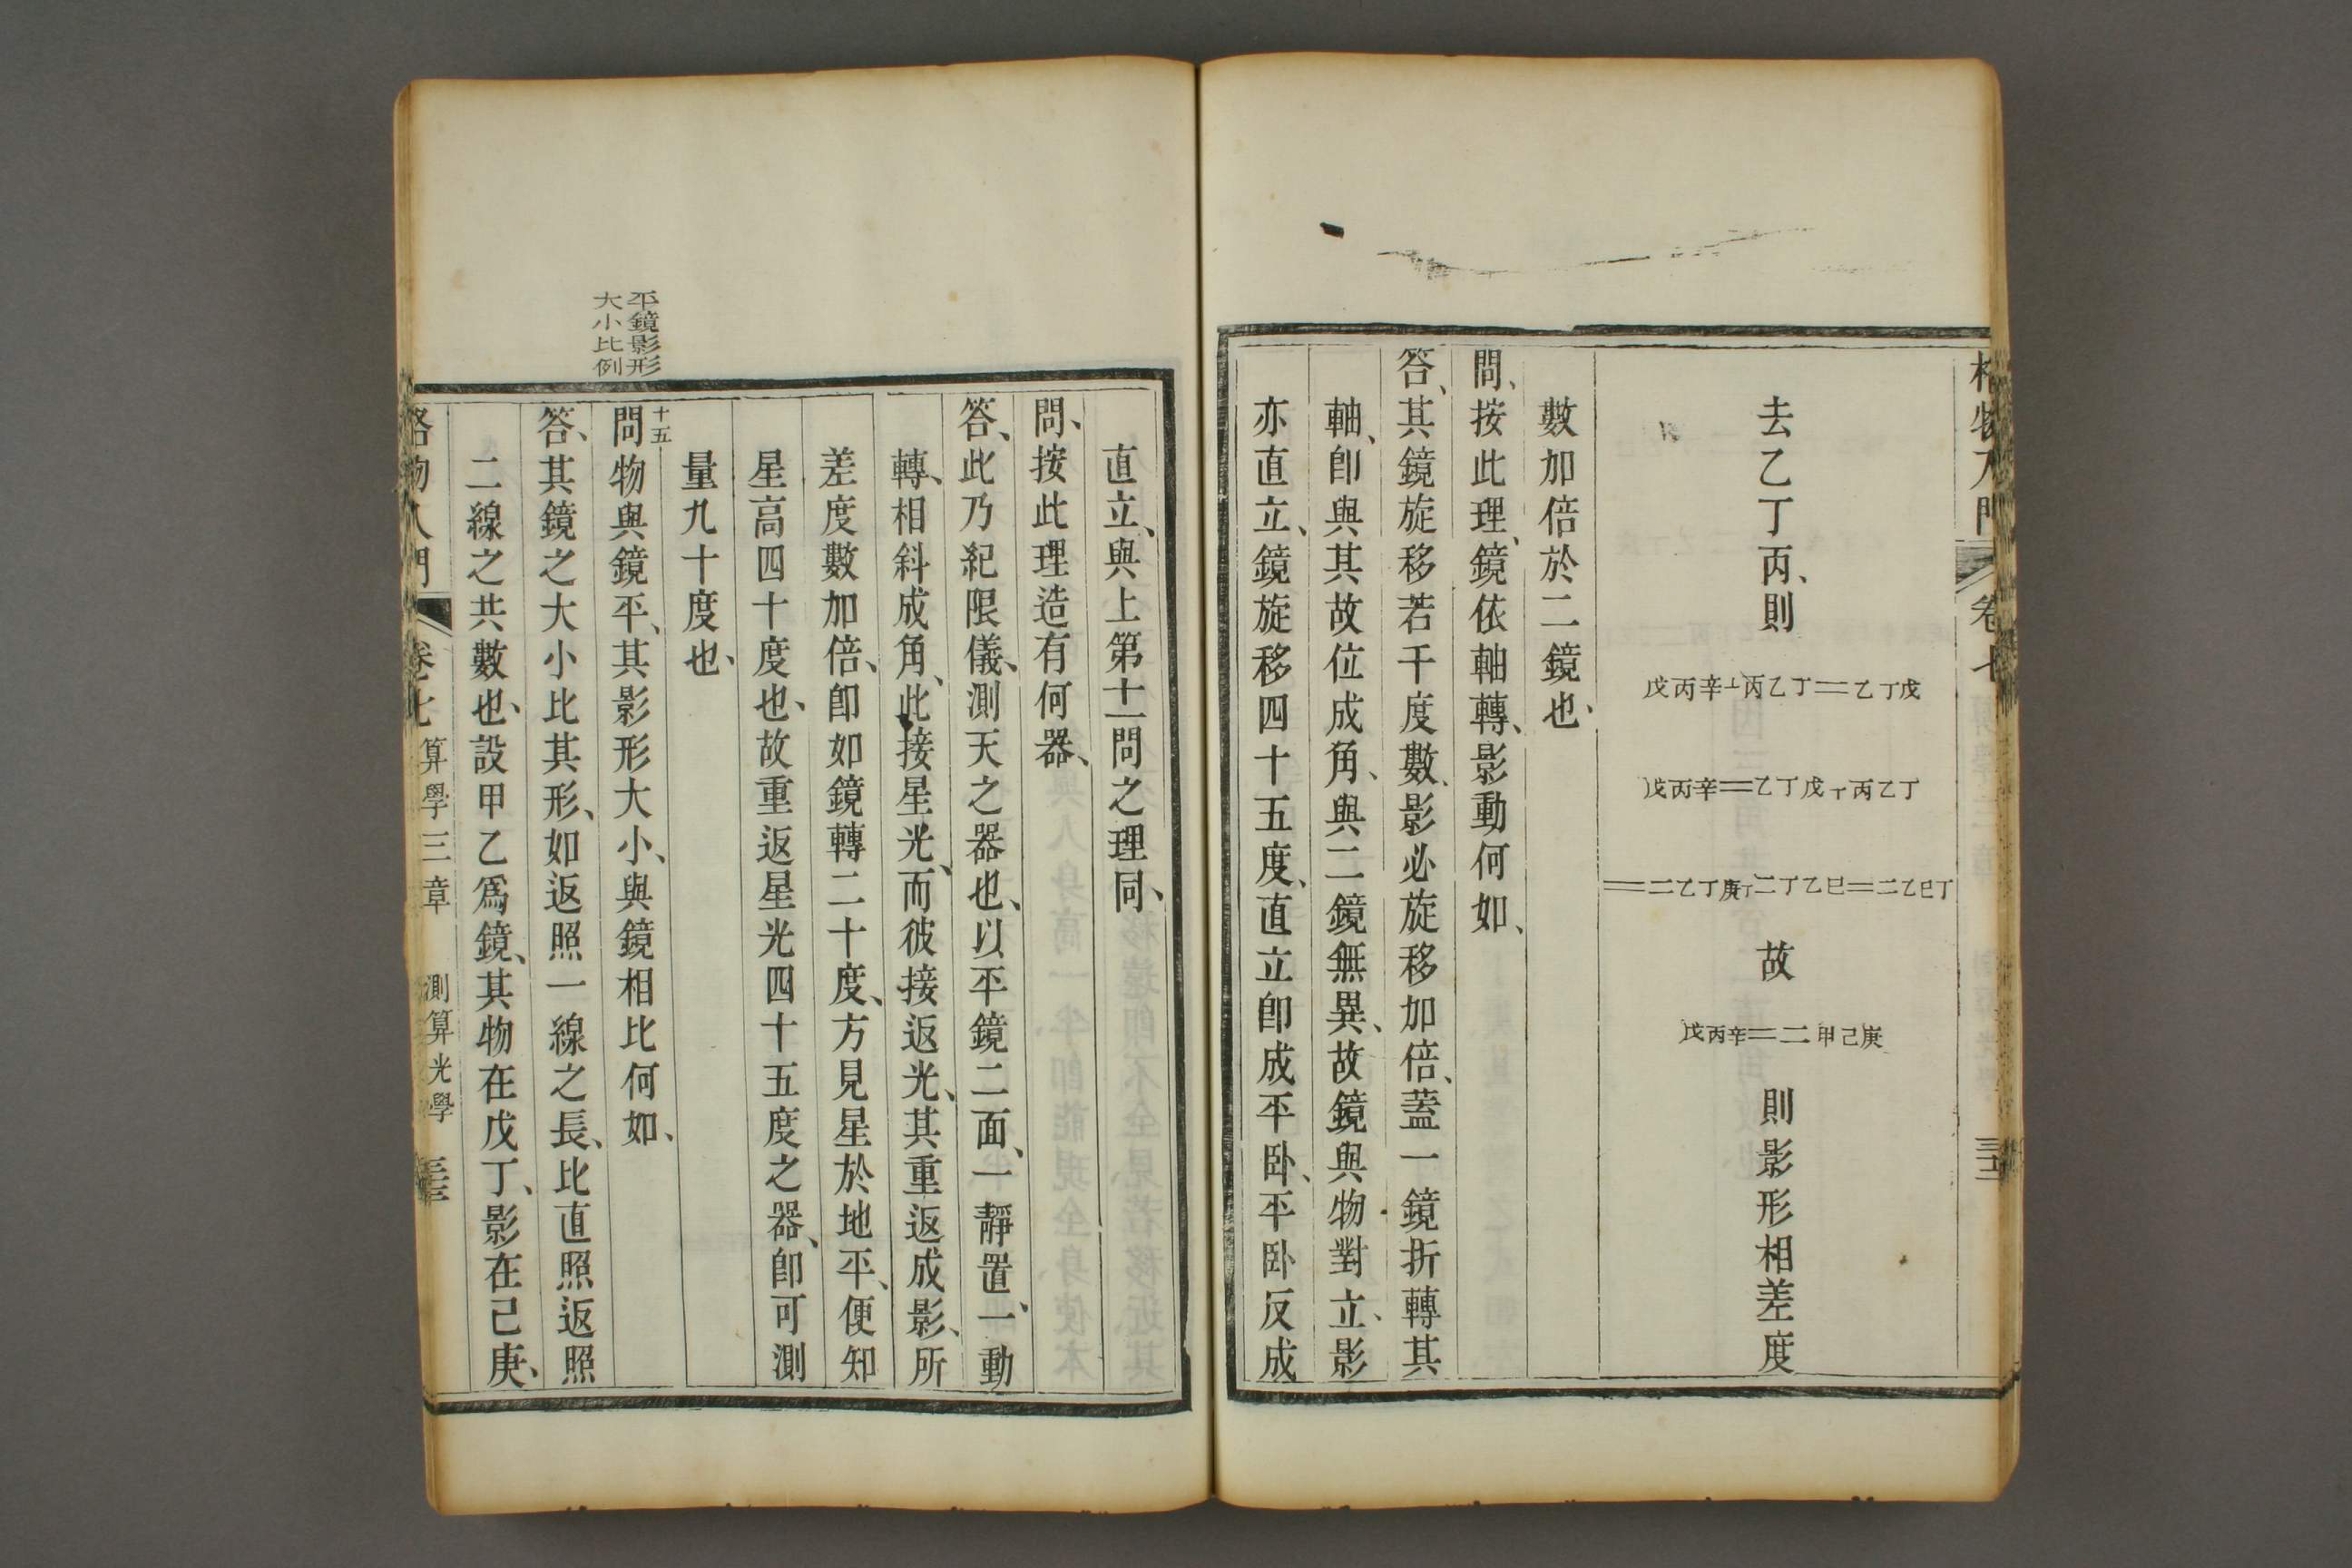 格物入門 卷七
去乙丁丙、則
戊丙辛⊥丙乙丁＝乙丁戊
戊丙辛＝乙丁戊⊤丙乙丁
＝二乙丁庚⊤二丁乙巳＝二乙巳丁
故
戊丙辛＝二甲己庚
則影形相差度
數加倍於二鏡也、
問、按此理、鏡依軸轉、影動何如、
答、其鏡旋移若干度數、影必旋移加倍、蓋一鏡折轉其
軸、卽與其故位成角、與二鏡無異、故鏡與物對立、影
亦直立、鏡旋移四十五度、直立卽成平卧、平卧反成
直立、與上第十一問之理同、
問、按此理造有何器、
答、此乃紀限儀、測天之器也、以平鏡二面、一靜置、一動
轉、相斜成角、此接星光、而彼接返光、其重返成影、所
差度數加倍、卽如鏡轉二十度、方見星於地平、便知
星高四十度也、故重返星光四十五度之器、卽可測
量九十度也、
平鏡影形
大小比例
十五
問物與鏡平、其影形大小、與鏡相比何如、
答、其鏡之大小比其形、如返照一線之長、比直照返照
二線之共數也、設甲乙爲鏡、其物在戊丁、影在己庚、
格物入門 卷七 算學三章 測算光學 三十三